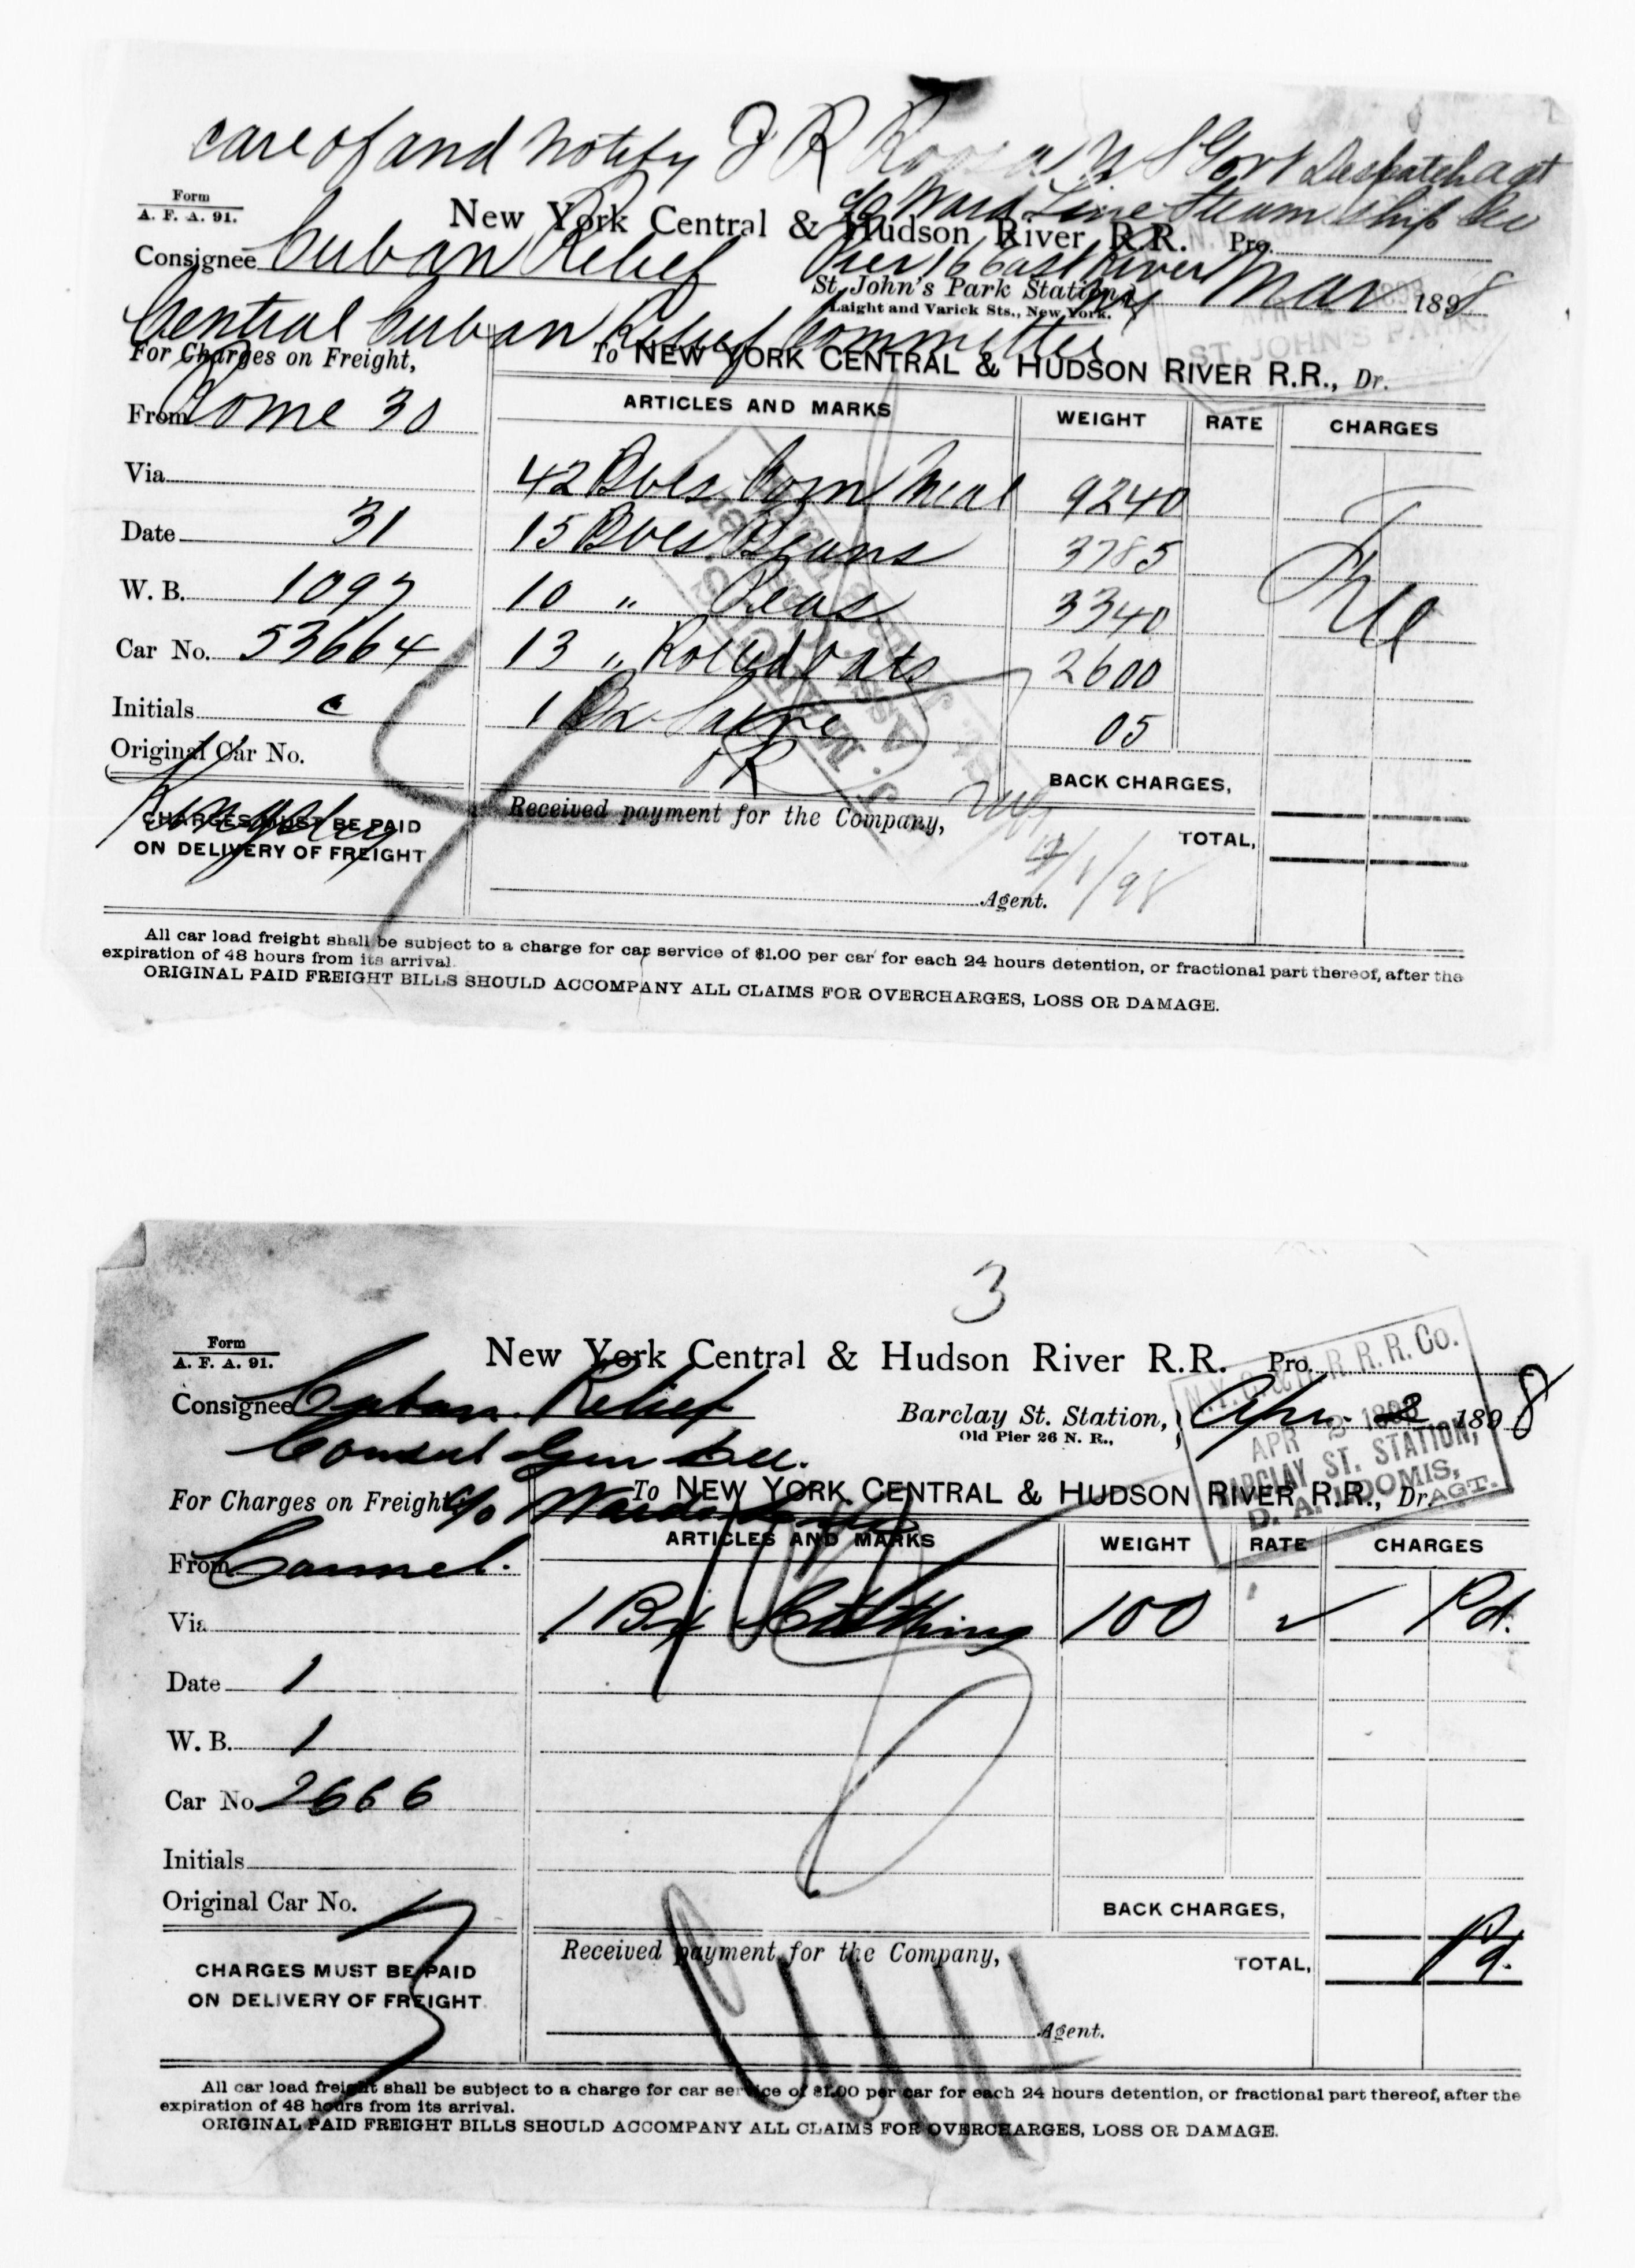 care of and Notify J R Roosa U S Govt Despatch agt
c/o Ward Line Steam Ship
Pier 16 East River
Form
A. F. A. 91.
New York Central & Hudson River R.R. Pro.
Consignee Cuban Relief
St. John's Park Station, NY Mar 1898
Laight and Varick Sts., New York.
Central Cuban Relief Committee
ST. JOHN'S PARK
For Charges on Freight,
To NEW YORK CENTRAL & HUDSON RIVER R.R., Dr.
From Rome 30
ARTICLES AND MARKS WEIGHT RATE CHARGES
Via
42 Bbls Corn Meal 9240
Date 31
15 Bbls Beans 3785
W. B. 1097
10 " Peas 3340
Car No. 53664
13 " Rolled Oats 2600
Initials C
1 Bx 05
Original Car No.
BACK CHARGES,
CHARGES MUST BE PAID
ON DELIVERY OF FREIGHT
Received payment for the Company,
TOTAL,
4/1/98
Agent.
All car load freight shall be subject to a charge for car service of $1.00 per car for each 24 hours detention, or fractional part thereof, after the
expiration of 48 hours from its arrival.
ORIGINAL PAID FREIGHT BILLS SHOULD ACCOMPANY ALL CLAIMS FOR OVERCHARGES, LOSS OR DAMAGE.
3
Form
A. F. A. 91.
New York Central & Hudson River R.R. Pro.
N.Y.C. & H. R. R. R. Co.
APR 3 1898
BARCLAY ST. STATION,
D. A. LOOMIS,
AGT.
Consignee Cuban Relief
Barclay St. Station, Apr. 3 1898
Old Pier 26 N. R.,
Consul Gen Lee.
For Charges on Freight, c/o Wards Line
To NEW YORK CENTRAL & HUDSON RIVER R.R., Dr.
ARTICLES AND MARKS WEIGHT RATE CHARGES
From Carmel.
1 Bx Clothing 100 Pd.
Via
Date 1
W. B. 1
Car No. 2666
Initials
Original Car No.
BACK CHARGES,
CHARGES MUST BE PAID
ON DELIVERY OF FREIGHT.
Received payment for the Company,
TOTAL, Pd.
Agent.
All car load freight shall be subject to a charge for car service of $1.00 per car for each 24 hours detention, or fractional part thereof, after the
expiration of 48 hours from its arrival.
ORIGINAL PAID FREIGHT BILLS SHOULD ACCOMPANY ALL CLAIMS FOR OVERCHARGES, LOSS OR DAMAGE.